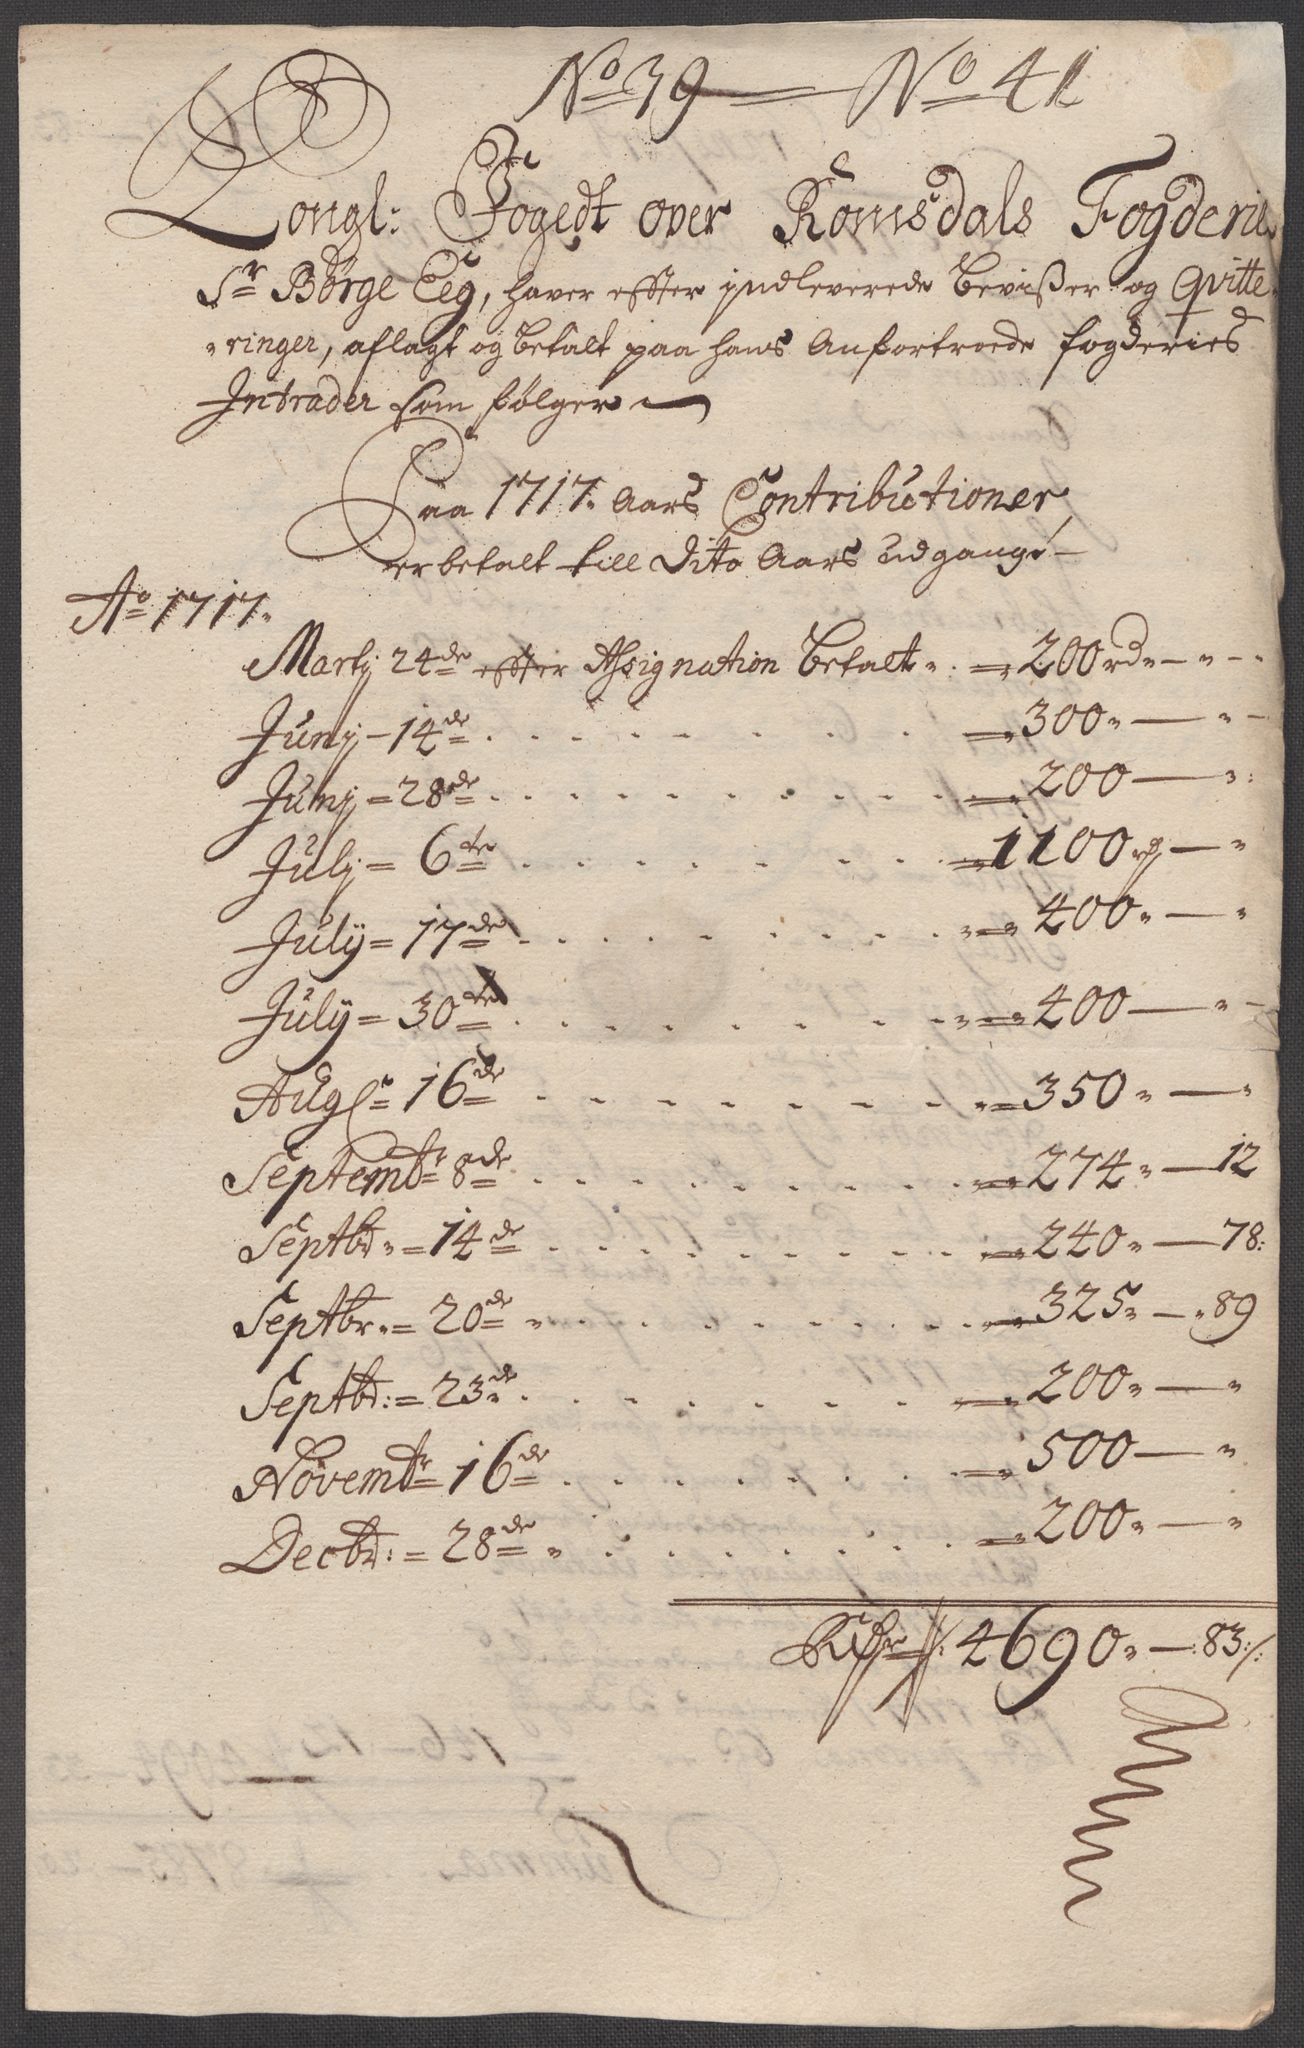 No 39 — No 41
Kongl: Fogedt over Romsdals Fogderie
Sr Børge Eeg, haver effter indleverede Bevißer og Qvitte-
ringer, aflagt og betalt paa hans Anfortroede fogderies
Intrader som følger
Paa 1717. Aars Contributioner,
er betalt till Dito Aars udgang:
Ao 1717.
Martj 24de effter Assignation betalt = 200 rd - -
Junj - 14de . . . = 300 - -
Junj = 28de . . . = 200 - -
Julj = 6te . . . = 1100 rd - -
July = 17de . . . = 400 - -
July = 30te . . . = 400 - -
Augst 16de . . . = 350 - -
Septembr 8de . . . = 274 - 12
Septbr = 14de . . . = 240 - 78:
Septbr = 20de . . . = 325 - 89
Septbr: = 23de . . . = 200 - -
Novembr 16de . . . = 500 - -
Decbr: = 28de . . . = 200 - -
4690 - 83:/: